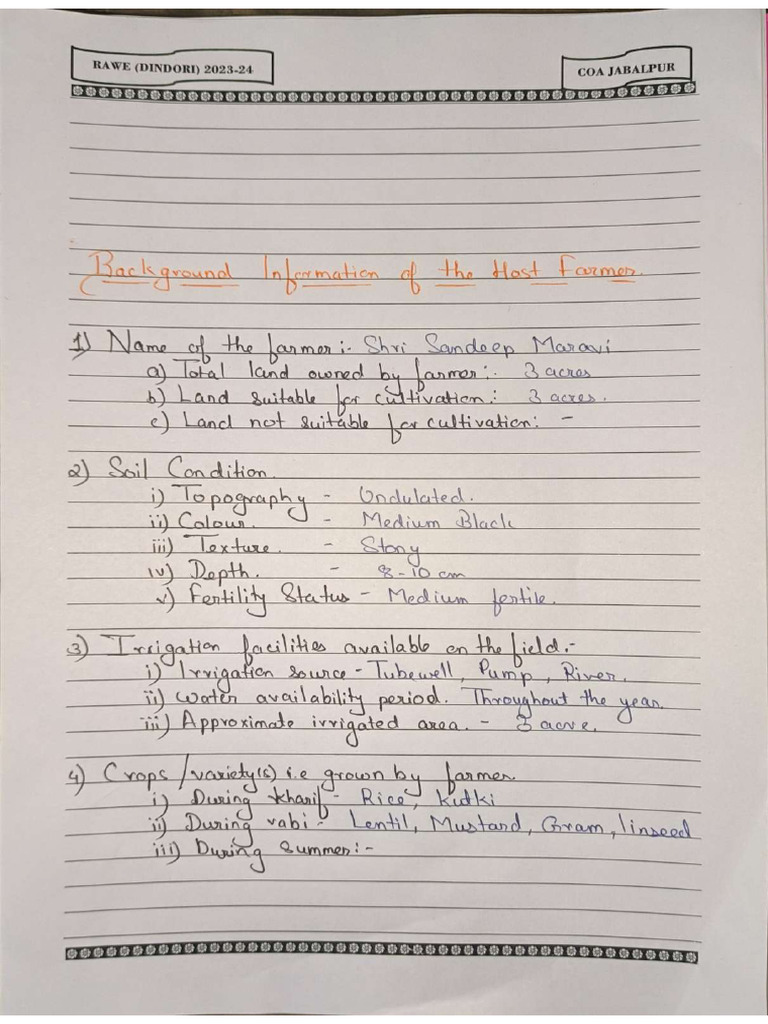 RAWE (DINDORI) 2023-24
COA JABALPUR
Background Information of the Host Farmer.
1) Name of the farmer:- Shri Sandeep Maravi
a) Total land owned by farmer:- 3 acres
b) Land suitable for cultivation:- 3 acres.
c) Land not suitable for cultivation: -
2) Soil Condition.
i) Topography - Undulated.
ii) Colour. - Medium Black
iii) Texture. - Stony
iv) Depth. - 8-10 cm
v) Fertility Status - Medium fertile.
3) Irrigation facilities available on the field.-
i) Irrigation source - Tubewell, Pump, River.
ii) Water availability period. Throughout the year.
iii) Approximate irrigated area. - 3 acre.
4) Crops /variety(s) i.e grown by farmer
i) During kharif - Rice, Kutki
ii) During rabi - Lentil, Mustard, Gram, linseed
iii) During Summer:-